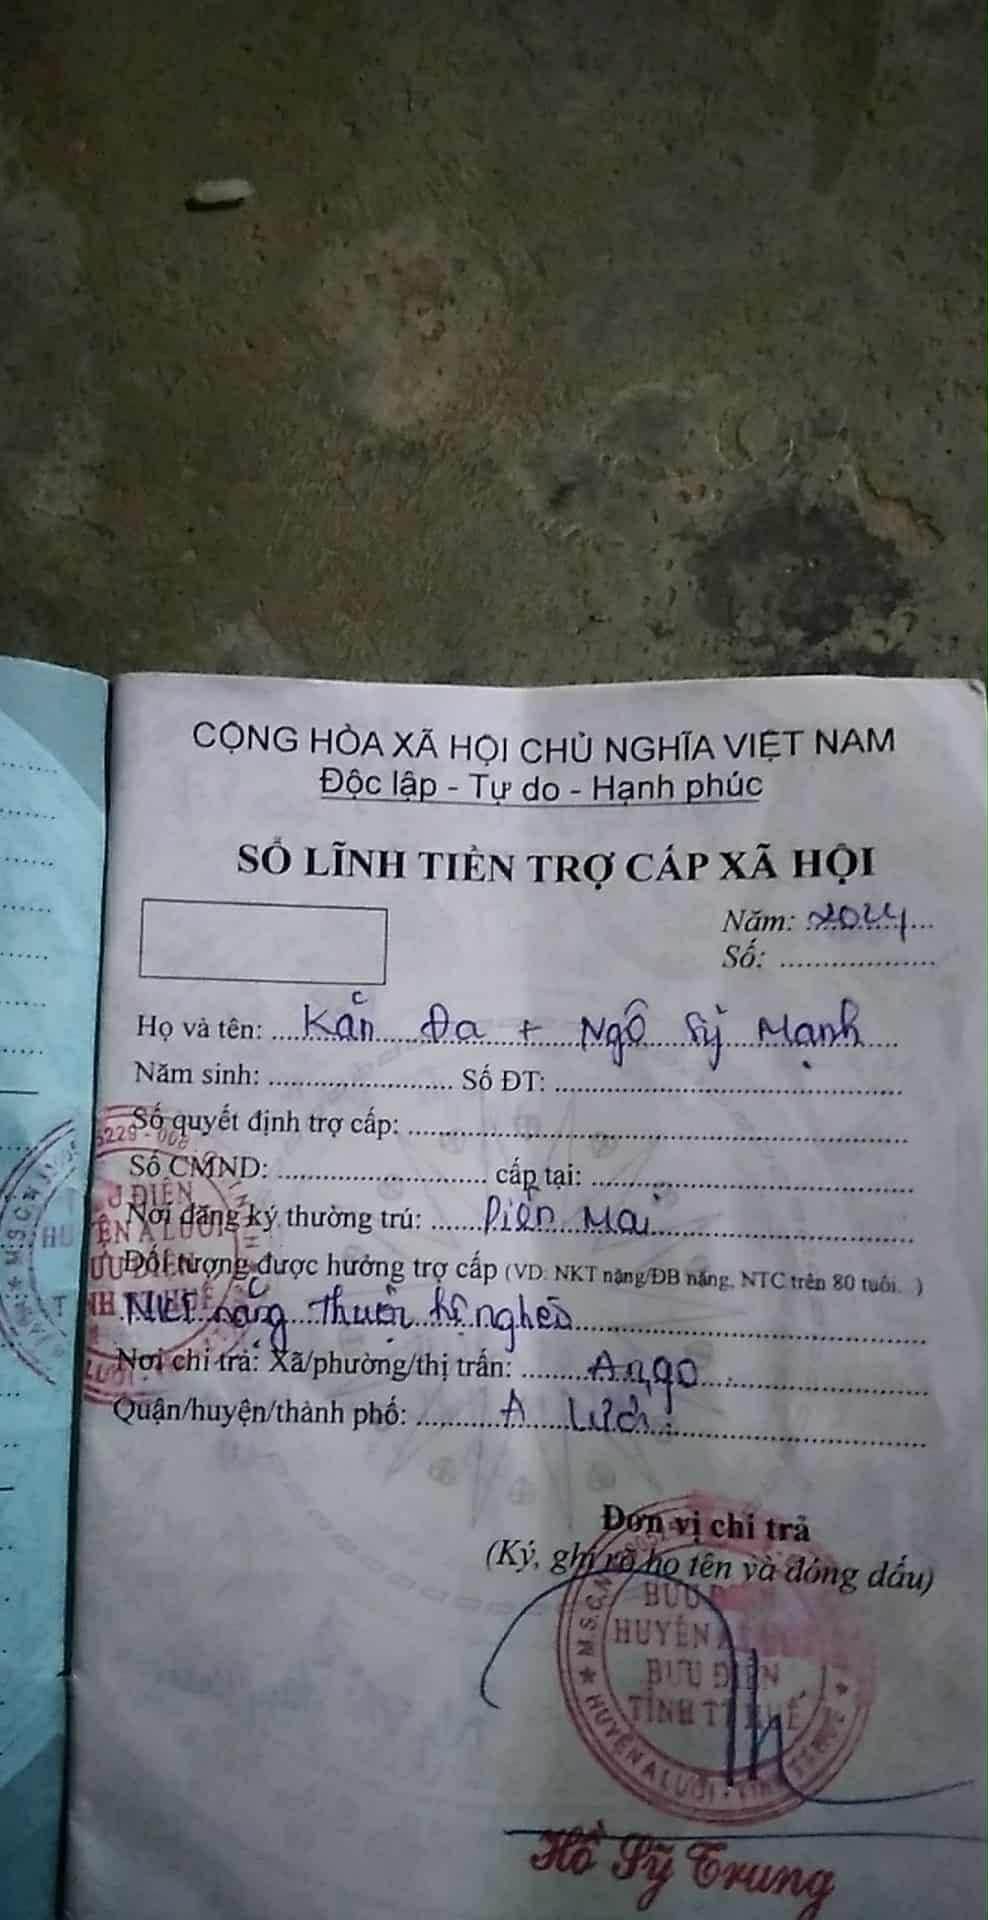 CỘNG HÒA XÃ HỘI CHỦ NGHĨA VIỆT NAM
Độc lập - Tự do - Hạnh phúc
SỔ LĨNH TIỀN TRỢ CẤP XÃ HỘI
Năm: 2024
Số:
Họ và tên: Kăn Đa + Ngô Sỹ Mạnh
Năm sinh: Số ĐT:
Số quyết định trợ cấp:
Số CMND: cấp tại:
Nơi đăng ký thường trú: Diên Mai
Đối tượng được hưởng trợ cấp (VD: NKT nặng/ĐB nặng, NTC trên 80 tuổi...)
NKT nặng thuộc hộ nghèo
Nơi chi trả: Xã/phường/thị trấn: A ngo
Quận/huyện/thành phố: A Lưới
Đơn vị chi trả
(Ký, ghi rõ họ tên và đóng dấu)
BƯU
HUYỆN A
BƯU ĐIỆN
TỈNH TT HUẾ
M.S.C.N
HUYỆN A LƯỚI
Hồ Sỹ Trung